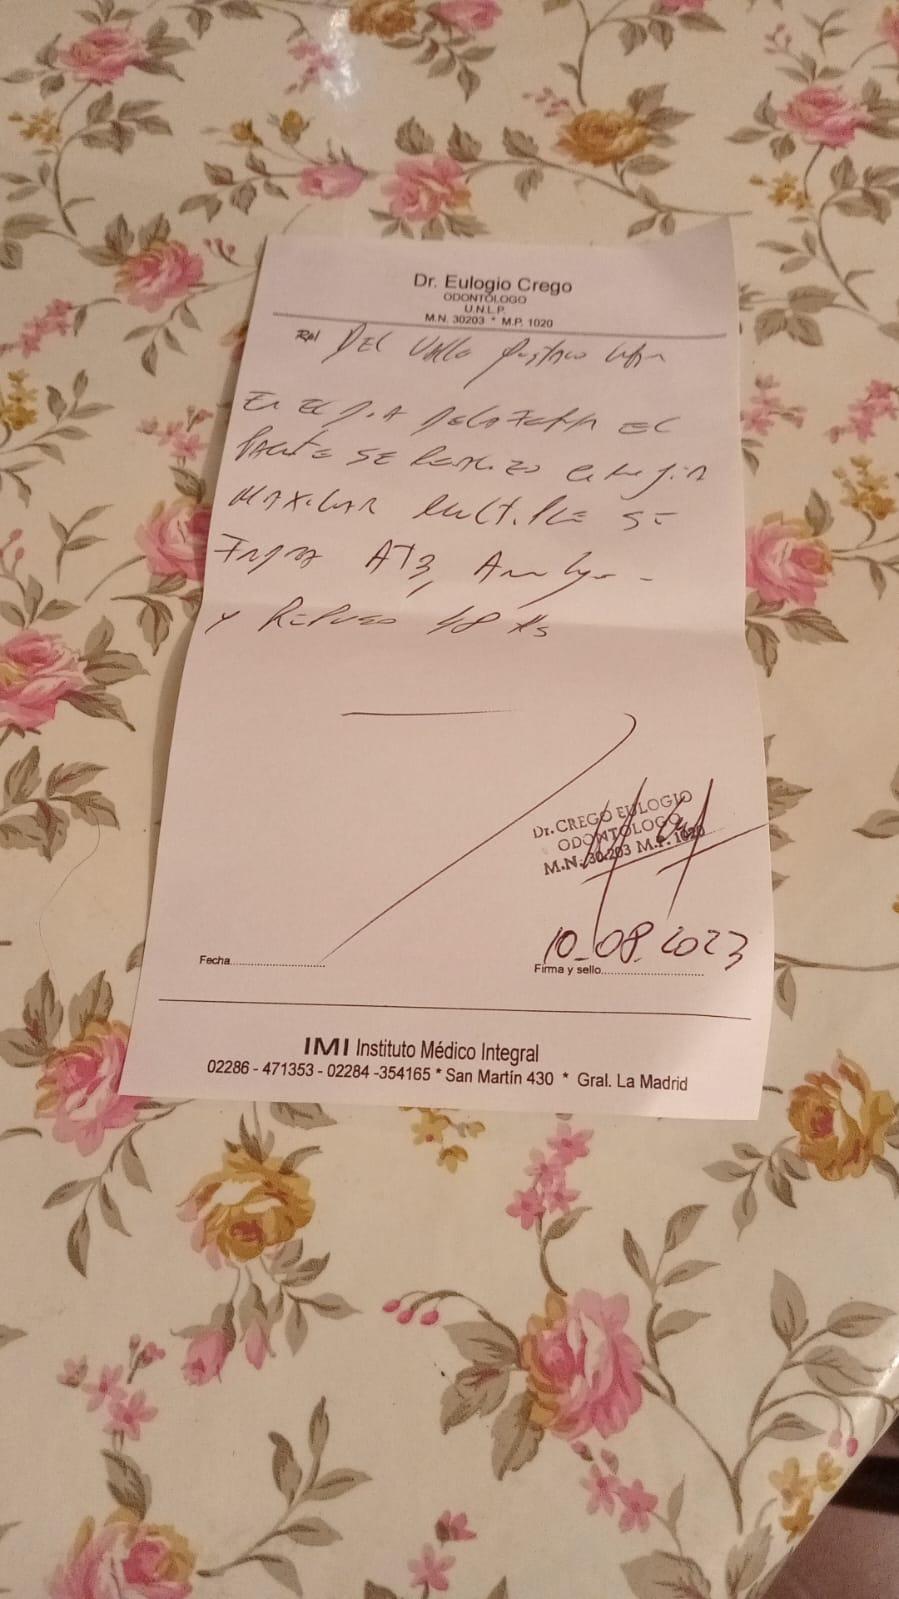 Dr. Eulogio Crego
ODONTÓLOGO
U.N.L.P.
M.N. 30203 * M.P. 1020
DEL Valle Gustavo
En EL DIA DE LA FECHA EL
PACIENTE SE REALIZO cirugia
MAXILAR MULTIPLE SE
ATB,
Y REPOSO 48 Hs
Dr. CREGO EULOGIO
ODONTÓLOGO
M.N. 30.203 M.P. 1020
10_08.2023
Fecha
Firma y sello
IMI Instituto Médico Integral
02286 - 471353 - 02284 -354165 * San Martín 430 * Gral. La Madrid